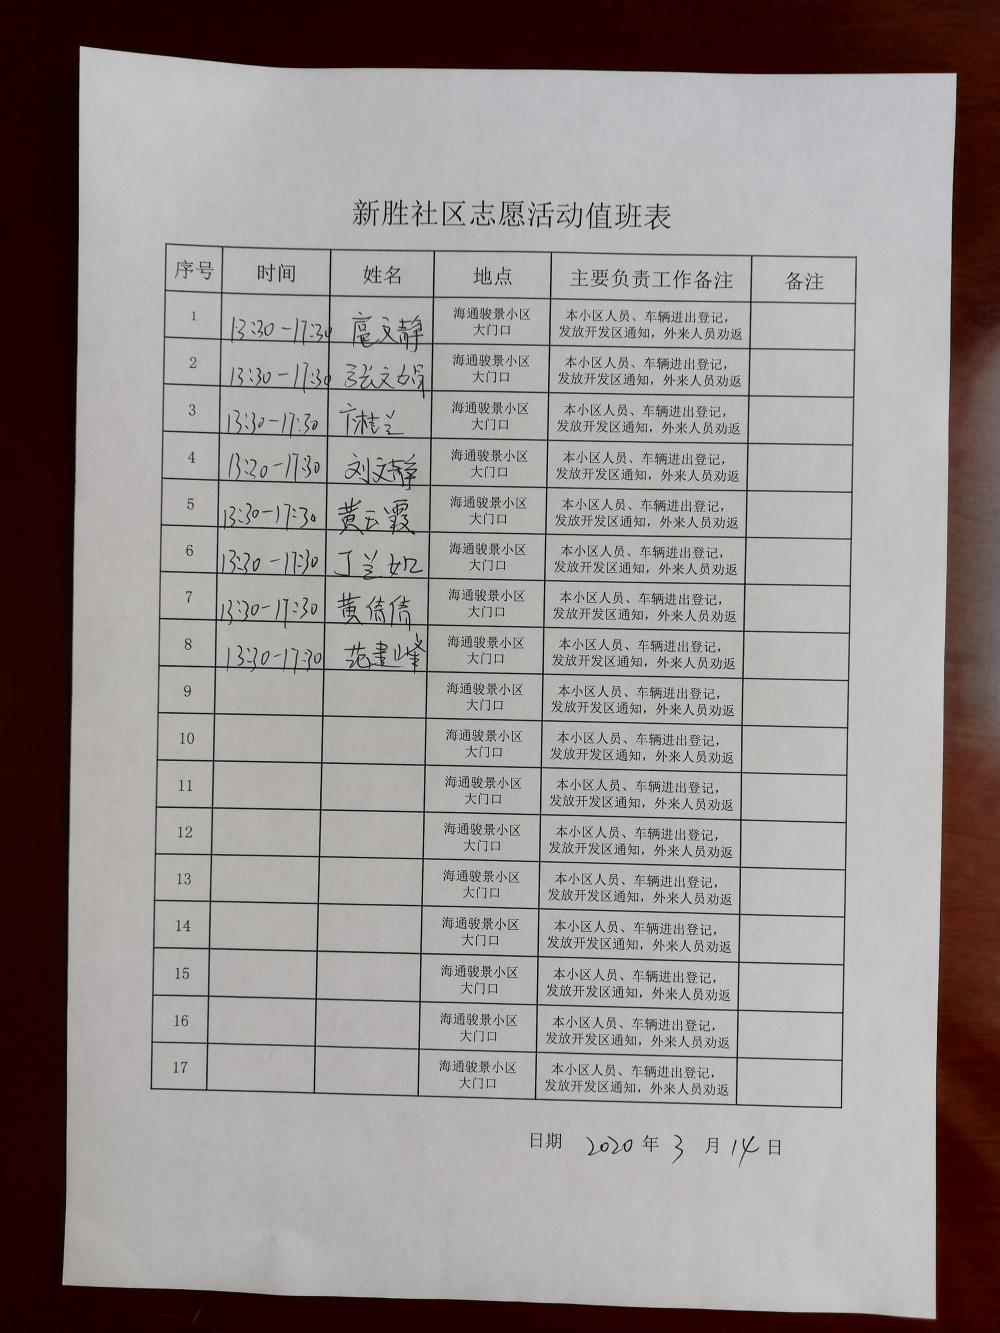 新胜社区志愿活动值班表
序号 时间 姓名 地点 主要负责工作备注 备注
1 13:30-17:30 扈文静 海通骏景小区 本小区人员、车辆进出登记，
大门口 发放开发区通知，外来人员劝返
2 13:30-17:30 张文娟 海通骏景小区 本小区人员、车辆进出登记，
大门口 发放开发区通知，外来人员劝返
3 13:30-17:30 海通骏景小区 本小区人员、车辆进出登记，
大门口 发放开发区通知，外来人员劝返
4 13:30-17:30 刘文静 海通骏景小区 本小区人员、车辆进出登记，
大门口 发放开发区通知，外来人员劝返
5 13:30-17:30 黄云霞 海通骏景小区 本小区人员、车辆进出登记，
大门口 发放开发区通知，外来人员劝返
6 13:30-17:30 丁兰如 海通骏景小区 本小区人员、车辆进出登记，
大门口 发放开发区通知，外来人员劝返
7 13:30-17:30 黄倩倩 海通骏景小区 本小区人员、车辆进出登记，
大门口 发放开发区通知，外来人员劝返
8 13:30-17:30 范建峰 海通骏景小区 本小区人员、车辆进出登记，
大门口 发放开发区通知，外来人员劝返
9 海通骏景小区 本小区人员、车辆进出登记，
大门口 发放开发区通知，外来人员劝返
10 海通骏景小区 本小区人员、车辆进出登记，
大门口 发放开发区通知，外来人员劝返
11 海通骏景小区 本小区人员、车辆进出登记，
大门口 发放开发区通知，外来人员劝返
12 海通骏景小区 本小区人员、车辆进出登记，
大门口 发放开发区通知，外来人员劝返
13 海通骏景小区 本小区人员、车辆进出登记，
大门口 发放开发区通知，外来人员劝返
14 海通骏景小区 本小区人员、车辆进出登记，
大门口 发放开发区通知，外来人员劝返
15 海通骏景小区 本小区人员、车辆进出登记，
大门口 发放开发区通知，外来人员劝返
16 海通骏景小区 本小区人员、车辆进出登记，
大门口 发放开发区通知，外来人员劝返
17 海通骏景小区 本小区人员、车辆进出登记，
大门口 发放开发区通知，外来人员劝返
日期 2020 年 3 月 14 日